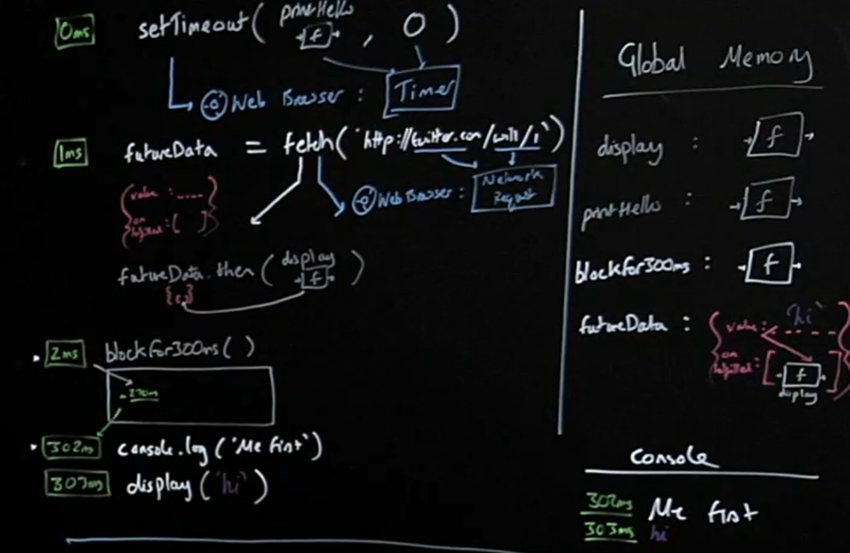 0ms setTimeout( printHello f , 0 )
Web Browser : Timer
1ms futureData = fetch('http://twitter.com/will/1')
value : .....
on fulfilled : [ ]
Web Browser : Network Request
futureData.then( display f )
2ms blockfor300ms( )
270ms
302ms console.log('Me first')
303ms display('hi')
Global Memory
display : f
printHello : f
blockfor300ms : f
futureData : value : 'hi'
on fulfilled : [ f ]
display
Console
302ms Me first
303ms hi